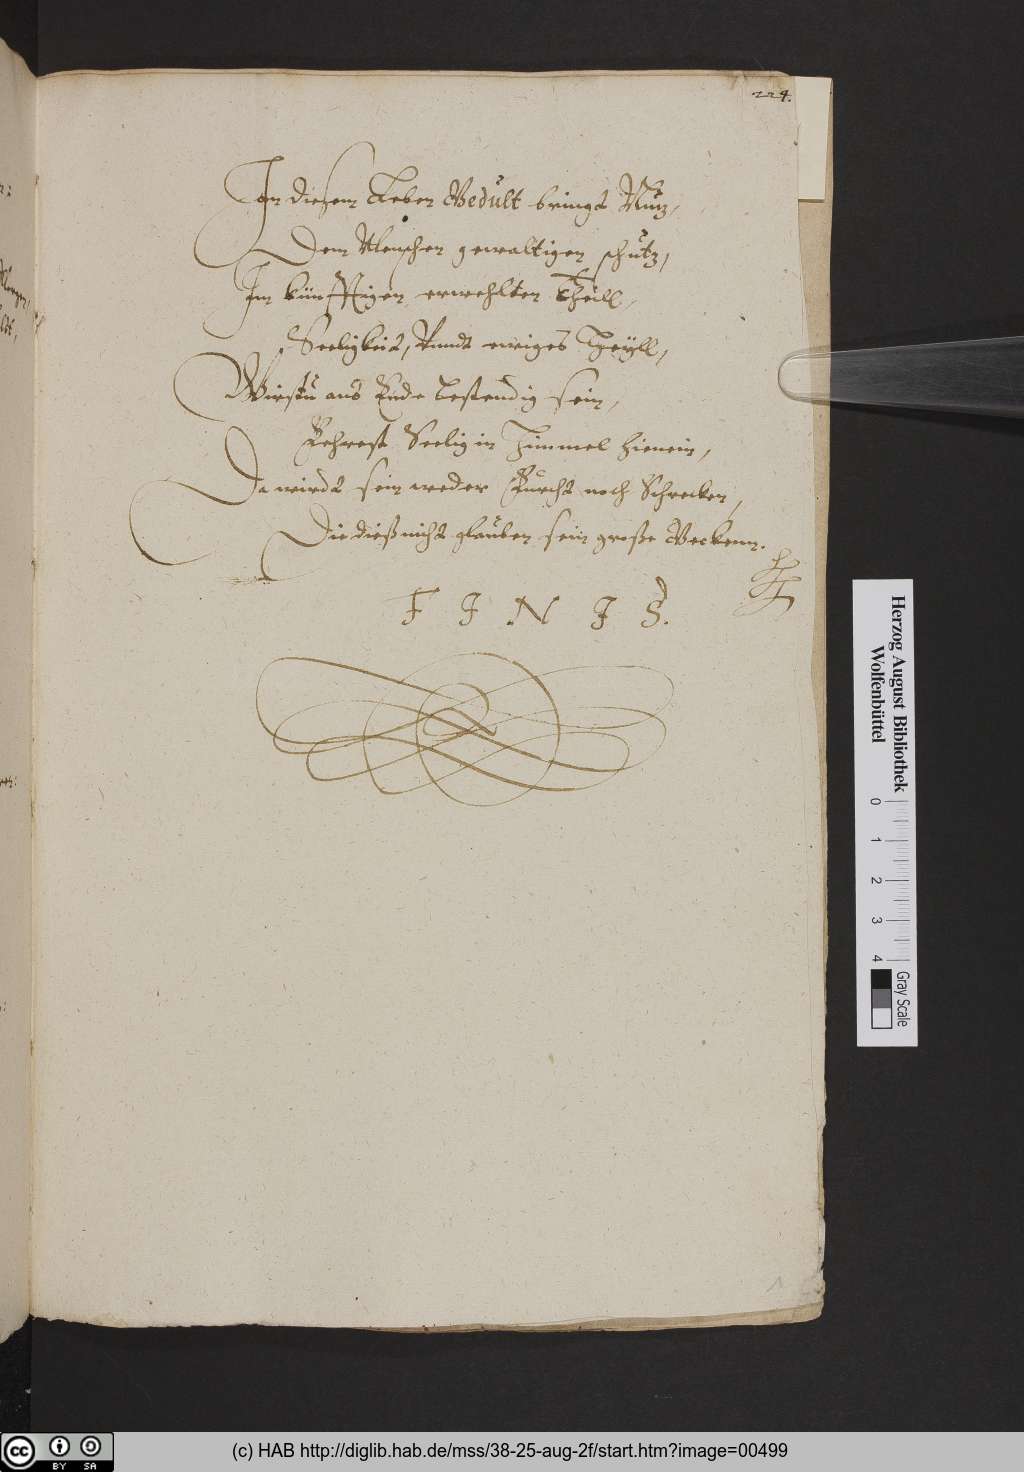 224.
In diesem Leben Gedùlt bringt Nùtz,
Dem Menschen gewaltigen schùtz,
Im künfftigen erwehlten Theill,
Seeligkeit, Vnndt ewiges Heyll,
Wirstù ans Ende bestendig sein,
Fehrest Seelig in Himmel hienein,
Da wirdt sein weder Fùrcht noch Schrecken,
Die dieß nicht glaùben sein große Gecken.
F I N I S.
Herzog August Bibliothek
Wolfenbüttel
0 1 2 3 4
Gray Scale
cc BY SA
(c) HAB http://diglib.hab.de/mss/38-25-aug-2f/start.htm?image=00499